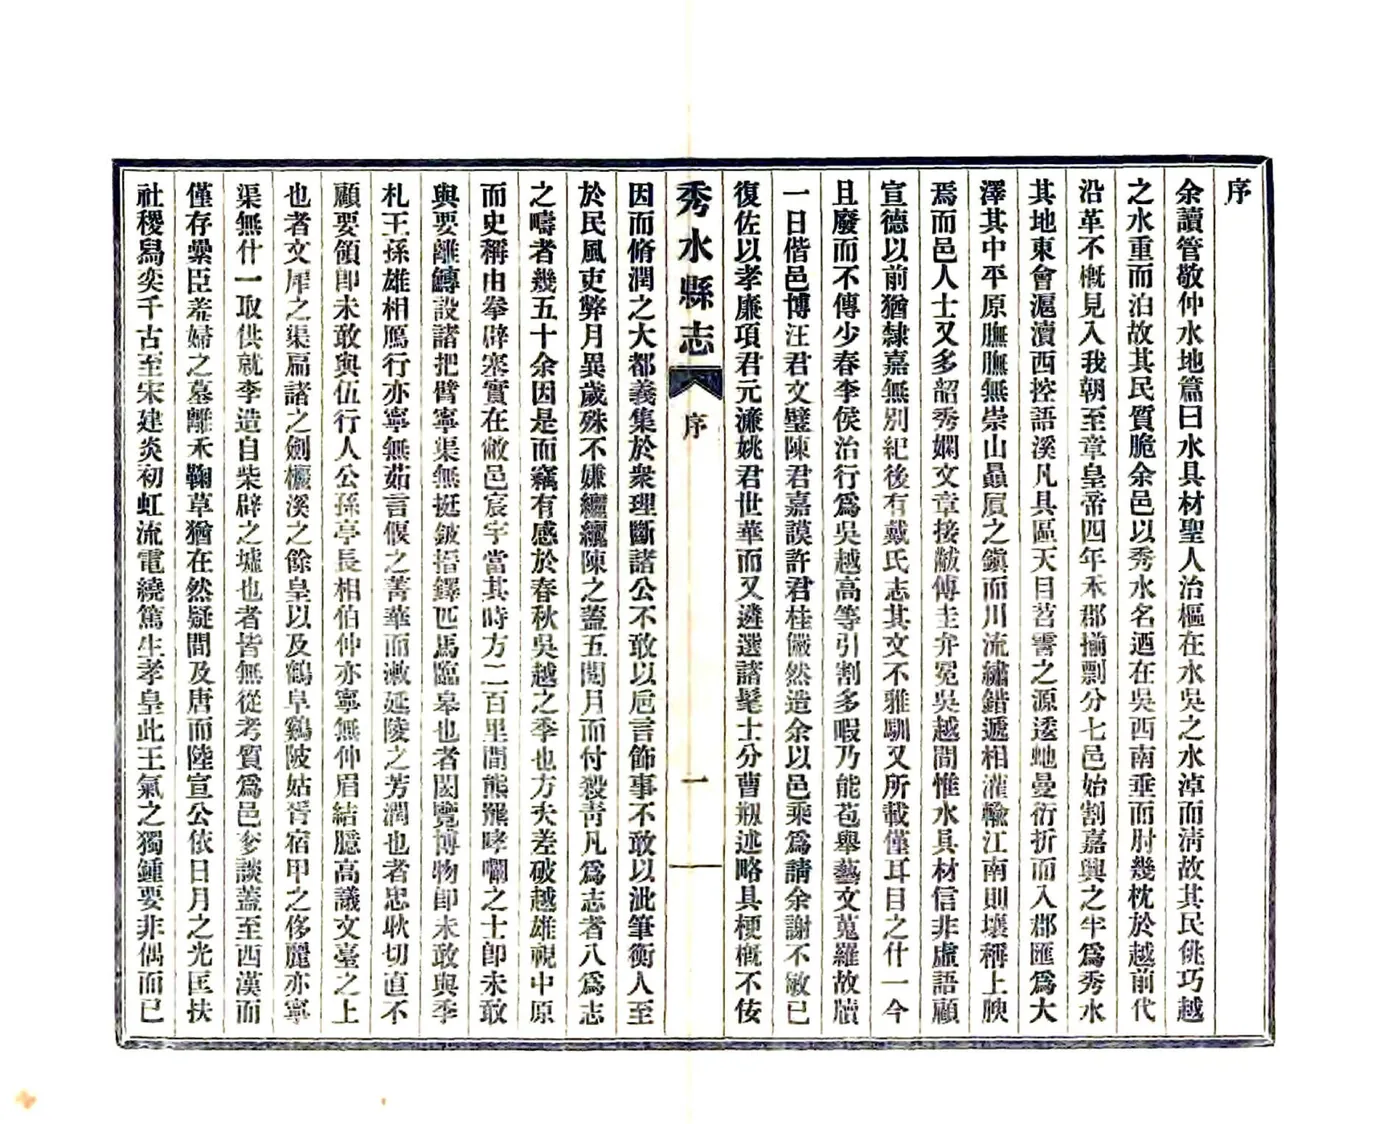 序
余讀管敬仲水地篇曰水具材聖人治樞在水吳之水淖而淸故其民佻巧越
之水重而泊故其民質脆余邑以秀水名迺在吳西南垂而肘幾枕於越前代
沿革不槪見入我朝至章皇帝四年禾郡揃剽分七邑始割嘉興之半爲秀水
其地東會滬瀆西控語溪凡具區天目苕霅之源逶虵曼衍折而入郡匯爲大
澤其中平原膴膴無崇山贔屓之鎭而川流繡錯遞相灌輸江南則壤稱上腴
焉而邑人士又多韶秀嫻文章接黻傅圭弁冕吳越間惟水具材信非虛語顧
宣德以前猶隸嘉無別紀後有戴氏志其文不雅馴又所載僅耳目之什一今
且廢而不傳少春李侯治行爲吳越高等引割多暇乃能苞舉藝文蒐羅故牘
一日偕邑博汪君文璧陳君嘉謨許君桂儼然造余以邑乘爲請余謝不敏已
復佐以孝廉項君元濂姚君世華而又遴選諸髦士分曹剏述略具梗槪不佞
秀水縣志
序
一
因而脩潤之大都義集於衆理斷諸公不敢以巵言飾事不敢以泚筆衡人至
於民風吏弊月異歲殊不嫌纚纚陳之蓋五閱月而付殺靑凡爲志者八爲志
之疇者幾五十余因是而竊有感於春秋吳越之季也方夫差破越雄視中原
而史稱由拳辟塞實在敝邑宸宇當其時方二百里間熊羆哮嚪之士卽未敢
與要離鱄設諸把臂寧渠無挺鈹捂鐸匹馬臨皋也者閎覽博物卽未敢與季
札王孫雄相鴈行亦寧無茹言偃之菁華而漱延陵之芳潤也者忠耿切直不
顧要領卽未敢與伍行人公孫亭長相伯仲亦寧無仲眉結臆高議文臺之上
也者文犀之渠扁諸之劍欐溪之餘皇以及鶴阜鷄陂姑胥宿甲之侈麗亦寧
渠無什一取供就李造自柴辟之墟也者皆無從考質爲邑奓談蓋至西漢而
僅存纍臣羞婦之墓離禾鞠草猶在然疑間及唐而陸宣公依日月之光匡扶
社稷舃奕千古至宋建炎初虹流電繞篤生孝皇此王氣之獨鍾要非偶而已